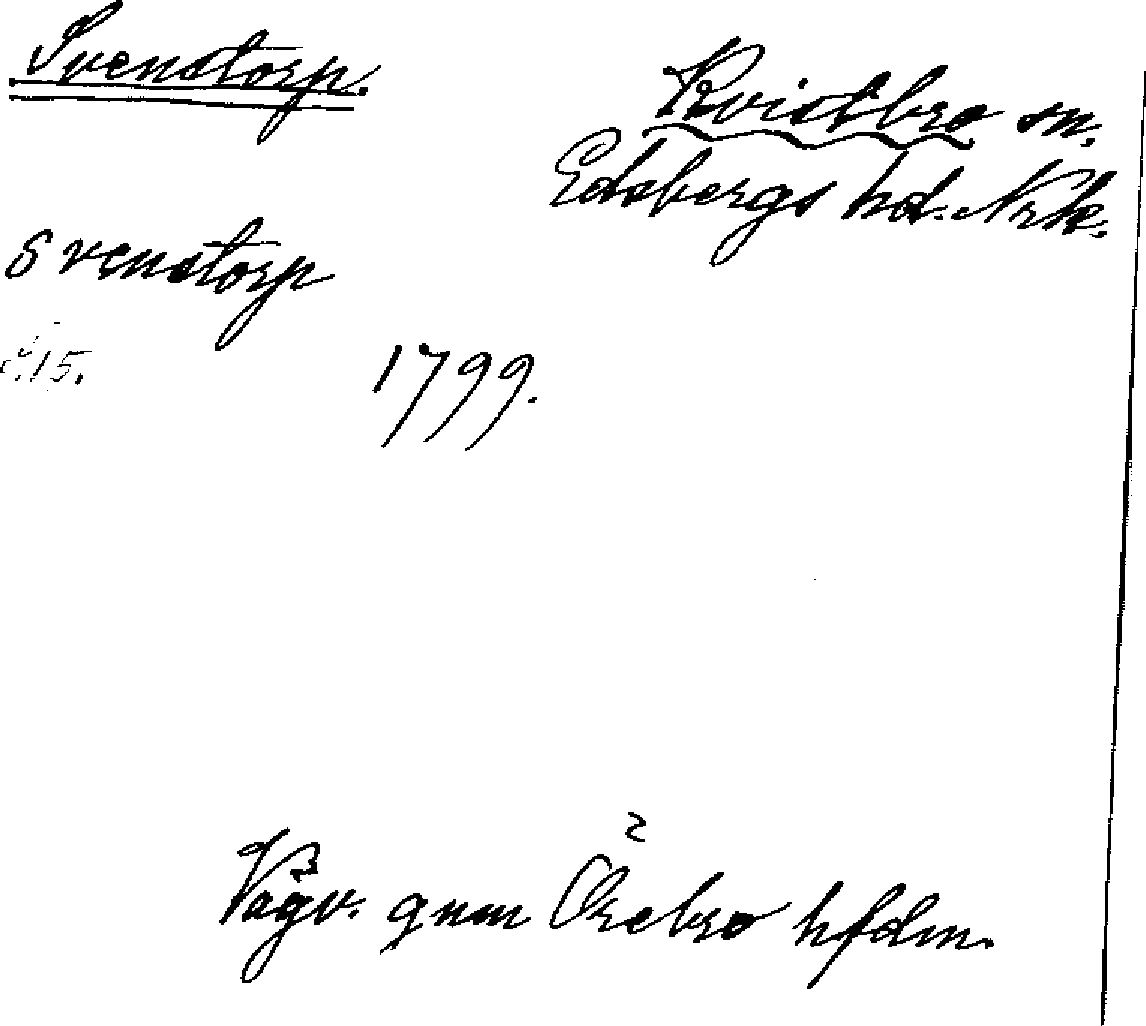 Svenstorp.
Kvistbro sn.
Edsbergs hd. Nrk.
Svenstorp
s.15.
1799.
Vägv. gnm Örebro hfdm.